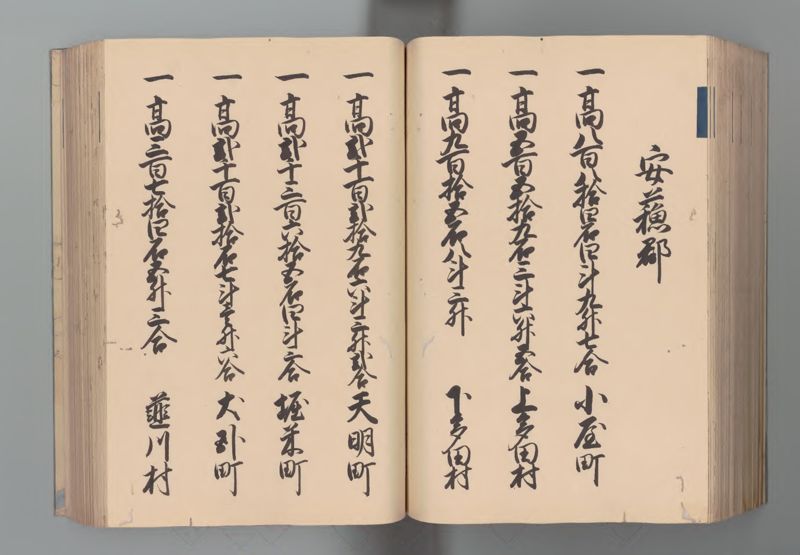 安蘓郡
一 高八百八拾四石四斗九升七合 小屋町
一 高五百五拾九石三斗六升五合 上多田村
一 高九百拾五石八斗二升 下多田村
一 高弐千百弐拾九石六斗二升弐合 天明町
一 高弐千三百六拾五石四斗二合 堀米町
一 高弐千百弐拾石七斗壱升六合 犬卧町
一 高三百七拾四石五升三合 韮川村